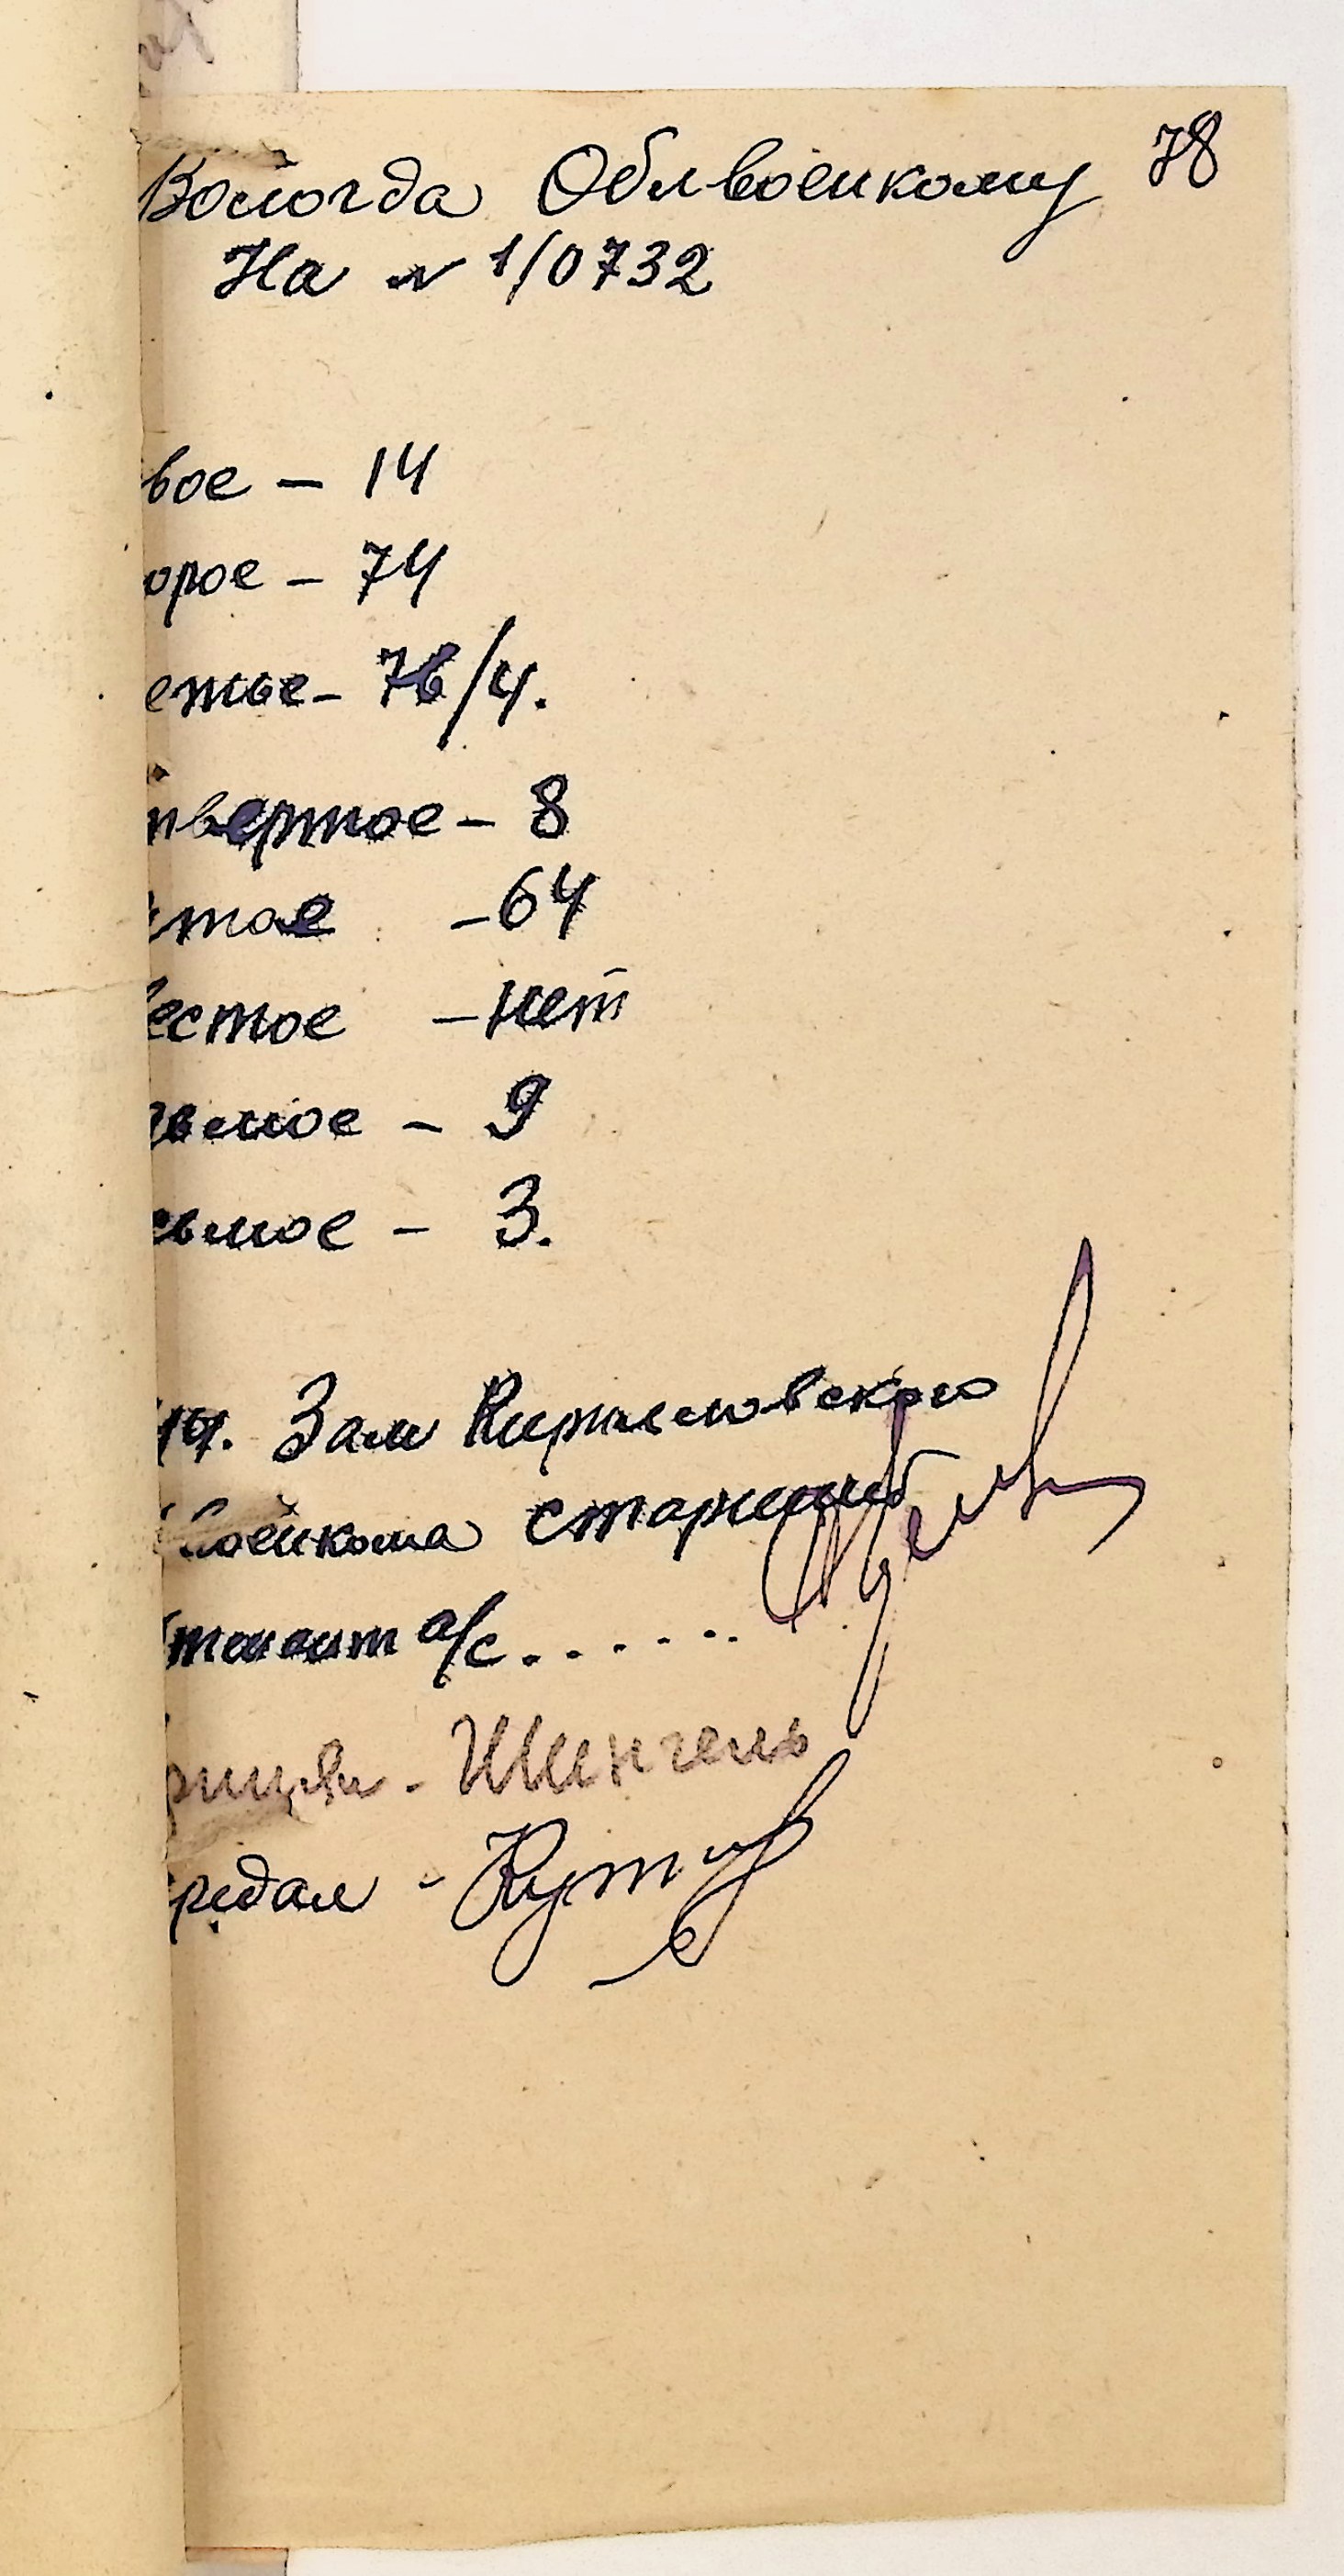 78
Вологда Облвоенкому
На № 1/0732
вое - 14
орое - 74
етье - 76/4.
твертое - 8
тое - 64
естое - нет
вемое - 9
сьмое - 3.
Зам Кирилловского
военкома старший
тенант а/с......
Шингель
редал -